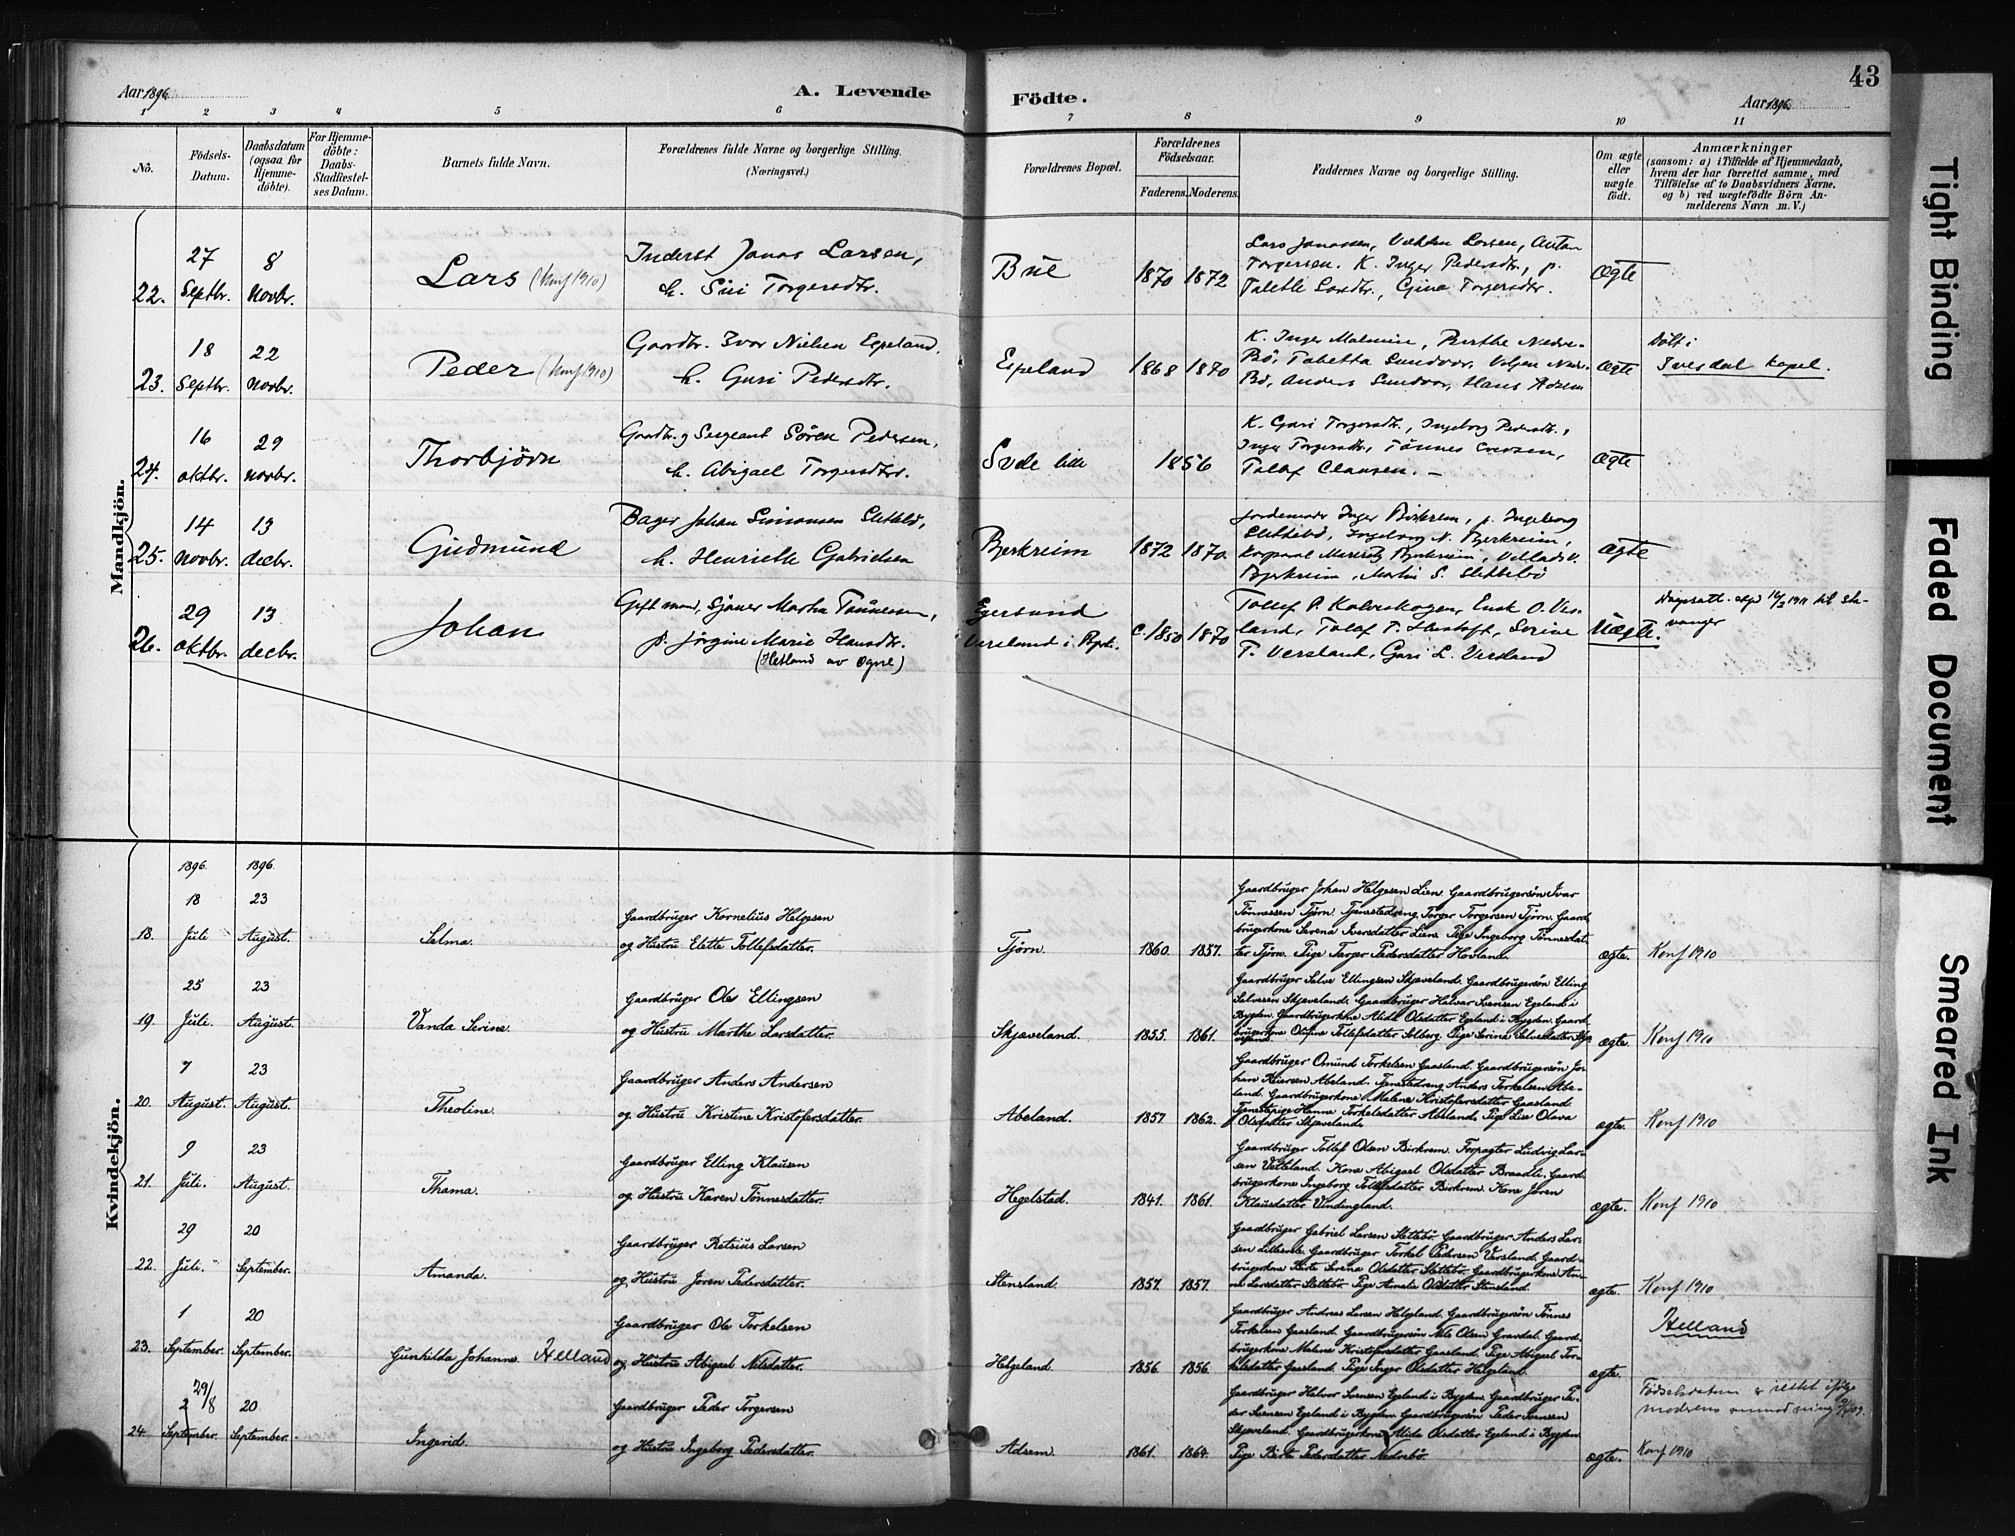 43
Aar 1896.
A. Levende
Födte.
Aar 1896.
1 2 3 4 5 6 7 8 9 10 11
No.
Födsels-Datum.
Daabsdatum (ogsaa for Hjemme-döbte).
For Hjemme-döbte: Daabs-Stadfæstel-ses Datum.
Barnets fulde Navn.
Forældrenes fulde Navne og borgerlige Stilling. (Næringsvei.)
Forældrenes Bopæl.
Forældrenes Födselsaar.
Faderens. Moderens.
Faddernes Navne og borgerlige Stilling.
Om ægte eller uægte födt.
Anmærkninger
(saasom: a) i Tilfælde af Hjemmedaab,
hvem der har forrettet samme, med
Tilföielse af to Daabsvidners Navne.
og b) ved uægtefödte Börn An-
melderens Navn m. V.)
Mandkjön.
22. 27 Septbr. 8 Novbr. Lars (Konf 1910)
Inderst Jonas Larsen,
h. Siri Torgersdtr.
Bue 1870 1872
Lars Jonassen, Larsen, Anton
Torgersen. K. Inger Pedersdtr., p.
Larsdtr., Gina Torgersdtr.
ægte
23. 18 Septbr. 22 Novbr. Peder (Konf 1910)
Gaardbr. Ivar Nielsen Espeland,
h. Guri Pedersdtr.
Espeland 1868 1870
K. Inger Malmin, Berthe Nedre-
Bö, Tabetta Sundvor, Nedre-
Bö, Anders Sundvor, Hans Adsem
ægte
Döbt i
Ivesdal kapel.
24. 16 oktbr. 29 novbr. Thorbjörn
Gaardbr. og Sergeant Sören Pedersen,
h. Abigael Torgersdtr.
Svele lille 1856
K. Guri Torgersdtr., Ingeborg Pedersdtr.,
Inger Torgersdtr., Tönnes Iversen,
Tolaf Clausen. —
ægte
25. 14 novbr. 13 decbr. Gudmund
Bager Johan Simonsen Slettebö,
h. Henriette Gabrielsen
Bjerkreim 1872 1870
Jordemoder Inger Birkrem, p. Ingeborg
Slettebö, Ingeborg N. Bjerkreim,
Korporal Bjerkreim,
Bjerkreim, Martin S. Slettebö
ægte
26. 29 oktbr. 13 decbr. Johan
Gift mand, Sjöauer Martin Tönnesen,
p. Jörgine Marie Hansdtr.
(Hetland av Ogne)
Egersund
Versland i Bjerkr. c. 1850 1870
Tollef P. Kalveskogen, Enok O. Ves-
land, Tolaf T. Hustoft, Serine
T. Versland, Guri L. Versland
Uægte.
Daapsatt. exp 10/2 1911 til Sta-
vanger
Kvindekjön.
1896. 1896.
18. 18 Juli 23 August. Selma.
Gaardbruger Kornelius Helgesen
og Hustru Elette Tollefsdatter.
Tjørn. 1860. 1857.
Gaardbruger Johan Helgesen Lien. Gaardbrugersön Ivar
Tönnessen Tjörn. Tjenestedreng Torger Torgersen Tjörn. Gaard-
brugerkone Serena Iversdatter Lien. Pige Ingeborg Tönnesdat-
ter Tjörn. Pige Torger Pedersdatter Hovland.
ægte. Konf 1910
19. 25 Juli. 23 August. Vanda Serine.
Gaardbruger Ole Ellingsen
og Hustru Marthe Larsdatter.
Skjæveland. 1855. 1861.
Gaardbruger Salve Ellingsen Skjæveland. Gaardbrugersön Elling
Salvesen Skjæveland. Gaardbruger Halvar Svensen Egeland i
Bygden. Gaardbrugerkone Alida Olsdatter Egeland i Bygden. Gaard-
brugerkone Olufine Tollefsdatter Solberg. Pige Serina Salvesdatter Skjæ-
veland.
ægte. Konf 1910
20. 7 August. 23 August. Theoline.
Gaardbruger Anders Andersen
og Hustru Kristine Kristofersdatter.
Abeland. 1857. 1862.
Gaardbruger Omund Torkelsen Gaasland. Gaardbrugersön Jo-
han Reiersen Abeland. Tjenestedreng Anders Torkelsen Abe-
land. Gaardbrugerkone Malene Kristofersdatter Gaasland.
Tjenestepige Hanna Torkelsdatter Abeland. Pige Lise Olava
Olsdatter Skjæveland.
ægte. Konf 1910
21. 9 Juli. 23 August. Thama.
Gaardbruger Elling Klausen
og Hustru Karen Tönnesdatter.
Hegelstad. 1841. 1861.
Gaardbruger Tollef Olsen Birkrem. Forpagter Ludvig Lar-
sen Vetteland. Kone Abigael Olsdatter Braadli. Gaard-
brugerkone Ingeborg Tollefsdatter Birkrem. Kone Jøren
Klausdatter Vindingland.
ægte. Konf 1910
22. 29 Juli. 20 September. Amanda.
Gaardbruger Retsius Larsen
og Hustru Joren Pedersdatter.
Stensland. 1857. 1857.
Gaardbruger Gabriel Larsen Slettebö. Gaardbruger Anders Lar-
sen Gaardbruger Torkel Pedersen Versland. Gaard-
brugerkone Berte Serena Olsdatter Slettebö. Gaardbrugerkone An-
ne Larsdatter Slettebö. Pige Amalie Olsdatter Stensland.
ægte. Konf 1910
23. 1 September. 20 September. Gunhilda Johanne. Helland
Gaardbruger Ole Torkelsen
og Hustru Abigael Nilsdatter.
Helgeland. 1856. 1856.
Gaardbruger Andreas Larsen Helgeland. Gaardbrugersön Tönnes
Torkelsen Gaasland. Gaardbrugersön Nils Olsen Gravdal. Gaard-
brugerkone Malene Kristofersdatter Gaasland. Pige Abigael Tor-
kelsdatter Gaasland. Pige Inger Olsdatter Helgeland.
ægte.
Helland
24. 29/8 2 September. 20 September. Ingerid.
Gaardbruger Peder Torgersen
og Hustru Ingeborg Pedersdatter.
Adsem. 1861. 1864.
Gaardbruger Halvor Svensen Egeland i Bygden. Gaardbruger Pe-
der Svensen Egeland i Bygden. Gaardbrugersön Peder Svensen
Skjæveland. Gaardbrugerkone Alida Olsdatter Egeland i Bygden.
Pige Berta Pedersdatter Nedrebö.
ægte.
Födselsdatum er rettet ifölge
moderens anmodning 9/4 09.
Konf 1910
Tight Binding
Faded Document
Smeared Ink